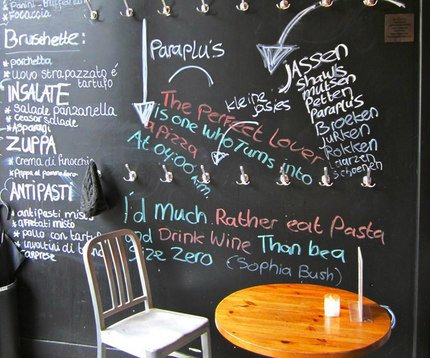 * Panini - Buffalino
* Focaccia
Bruschette:
* porchetta
* Uovo strapazzato é
tartufo
INSALATE
* Salade panzanella
* Ceasar salade
* Asparagi
ZUPPA
* Crema di Finocchio
* Pappa al pomodoro
ANTIPASTI
* antipasti misto
* affetati misto
* pollo con tartufo
* involtini di
* Caprese
Paraplu's
kleine
jasjes
JASSEN
Shawls
Mutsen
Petten
Paraplu's
Broeken
Jurken
Rokken
Laarzen
Schoenen
The Perfect Lover
is one who Turns into
a pizza
At 04:00 a.m.
I'd much Rather eat Pasta
and Drink Wine Than be a
Size Zero (Sophia Bush)